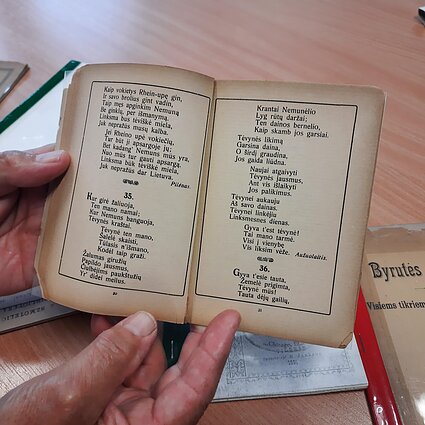 Kaip vokietys Rhein-upę gin,
Ir savo brolius gint vadin,
Taip męs apginkim Nemuną
Be ginklų, per išmanymą.
Linksma bus tėviškė miela,
Juk nepražus musų kalba.
Jei Rheino upę vokiečių,
Tur būt ji apsargoje jų;
Bet kadang' Nemuns mūs yra,
Nuo mūs tur gauti apsargą.
Linksma bus tėviškė miela,
Juk nepražus dar Lietuva.
Pilėnas.
35.
Kur girė žaliuoja,
Ten mano namai;
Kur Nemuns banguoja,
Tėvynės kraštai.
Tėvynė ten mano,
Šalelė skaisti,
Tūlasis n'išmano,
Kodėl taip graži.
Žalumas giružių
Papildo jausmus,
Gulbėjims paukštužių
Yr' didei meilus.
20
Krantai Nemunėlio
Lyg rūtų daržai;
Ten dainos bernelio,
Kaip skamb jos garsiai.
Tėvynės likimą
Garsina daina,
O širdį graudina,
Jos gaida liūdna.
Naujai atgaivyti
Tėvynės jausmus,
Ant vis išlaikyti
Jos palikimus.
Tėvynei aukauju
Aš savo dainas.
Tėvynei linkėjiu
Linksmesnes dienas.
Gyva t'esi tėvynė!
Tai mano tarmė.
Visi į vienybę
Vis liksim vėže.
Aušvalaitis.
36.
Gyva t'esie tauta,
Žemelė prigimta,
Tėvynė mūs!
Tauta dėjų gailių,
21
Byrutės
Visiems tikriem
Chicago, Ill.